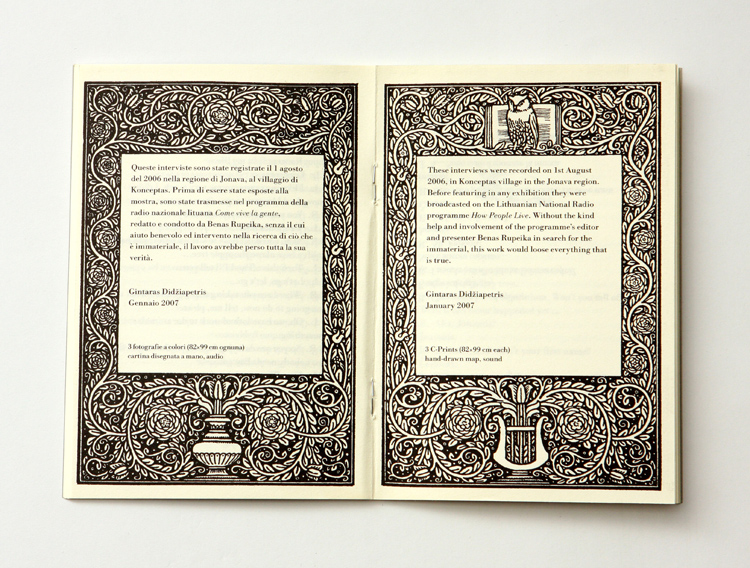 Queste interviste sono state registrate il 1 agosto
del 2006 nella regione di Jonava, al villaggio di
Konceptas. Prima di essere state esposte alla
mostra, sono state trasmesse nel programma della
radio nazionale lituana Come vive la gente,
redatto e condotto da Benas Rupeika, senza il cui
aiuto benevolo ed intervento nella ricerca di ciò che
è immateriale, il lavoro avrebbe perso tutta la sua
verità.
Gintaras Didžiapetris
Gennaio 2007
3 fotografie a colori (82×99 cm ognuna)
cartina disegnata a mano, audio
These interviews were recorded on 1st August
2006, in Konceptas village in the Jonava region.
Before featuring in any exhibition they were
broadcasted on the Lithuanian National Radio
programme How People Live. Without the kind
help and involvement of the programme's editor
and presenter Benas Rupeika in search for the
immaterial, this work would loose everything that
is true.
Gintaras Didžiapetris
January 2007
3 C-Prints (82×99 cm each)
hand-drawn map, sound